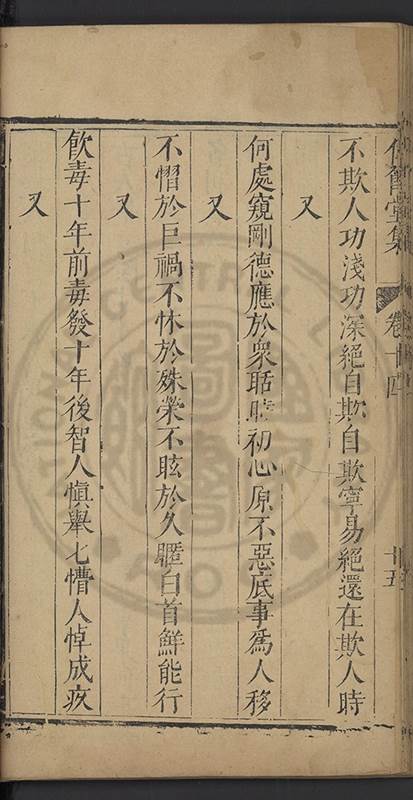 卷十四
十五
不欺人功淺功深絕自欺自欺寧易絕還在欺人時
又
何處窺剛德應於衆聒時初心原不惡底事為人移
又
不慴於巨禍不怵於殊榮不眩於久暱白首鮮能行
又
飲毒十年前毒發十年後智人慎舉匕懵人悼成疚
又